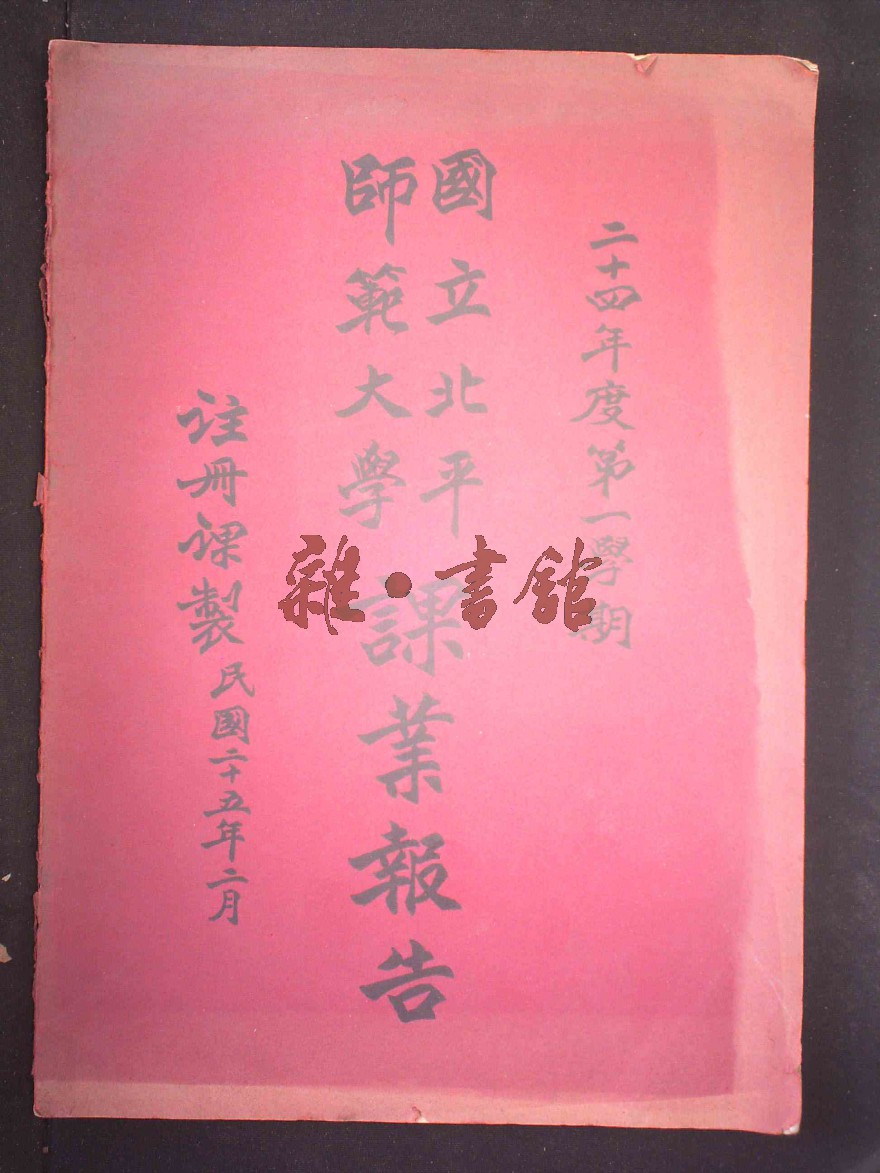 二十四年度第一學期
國立北平
師範大學
課業報告
註冊課製
民國二十五年二月
雜·書館